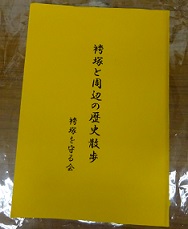 袴塚と周辺の歴史散歩
袴塚を守る会